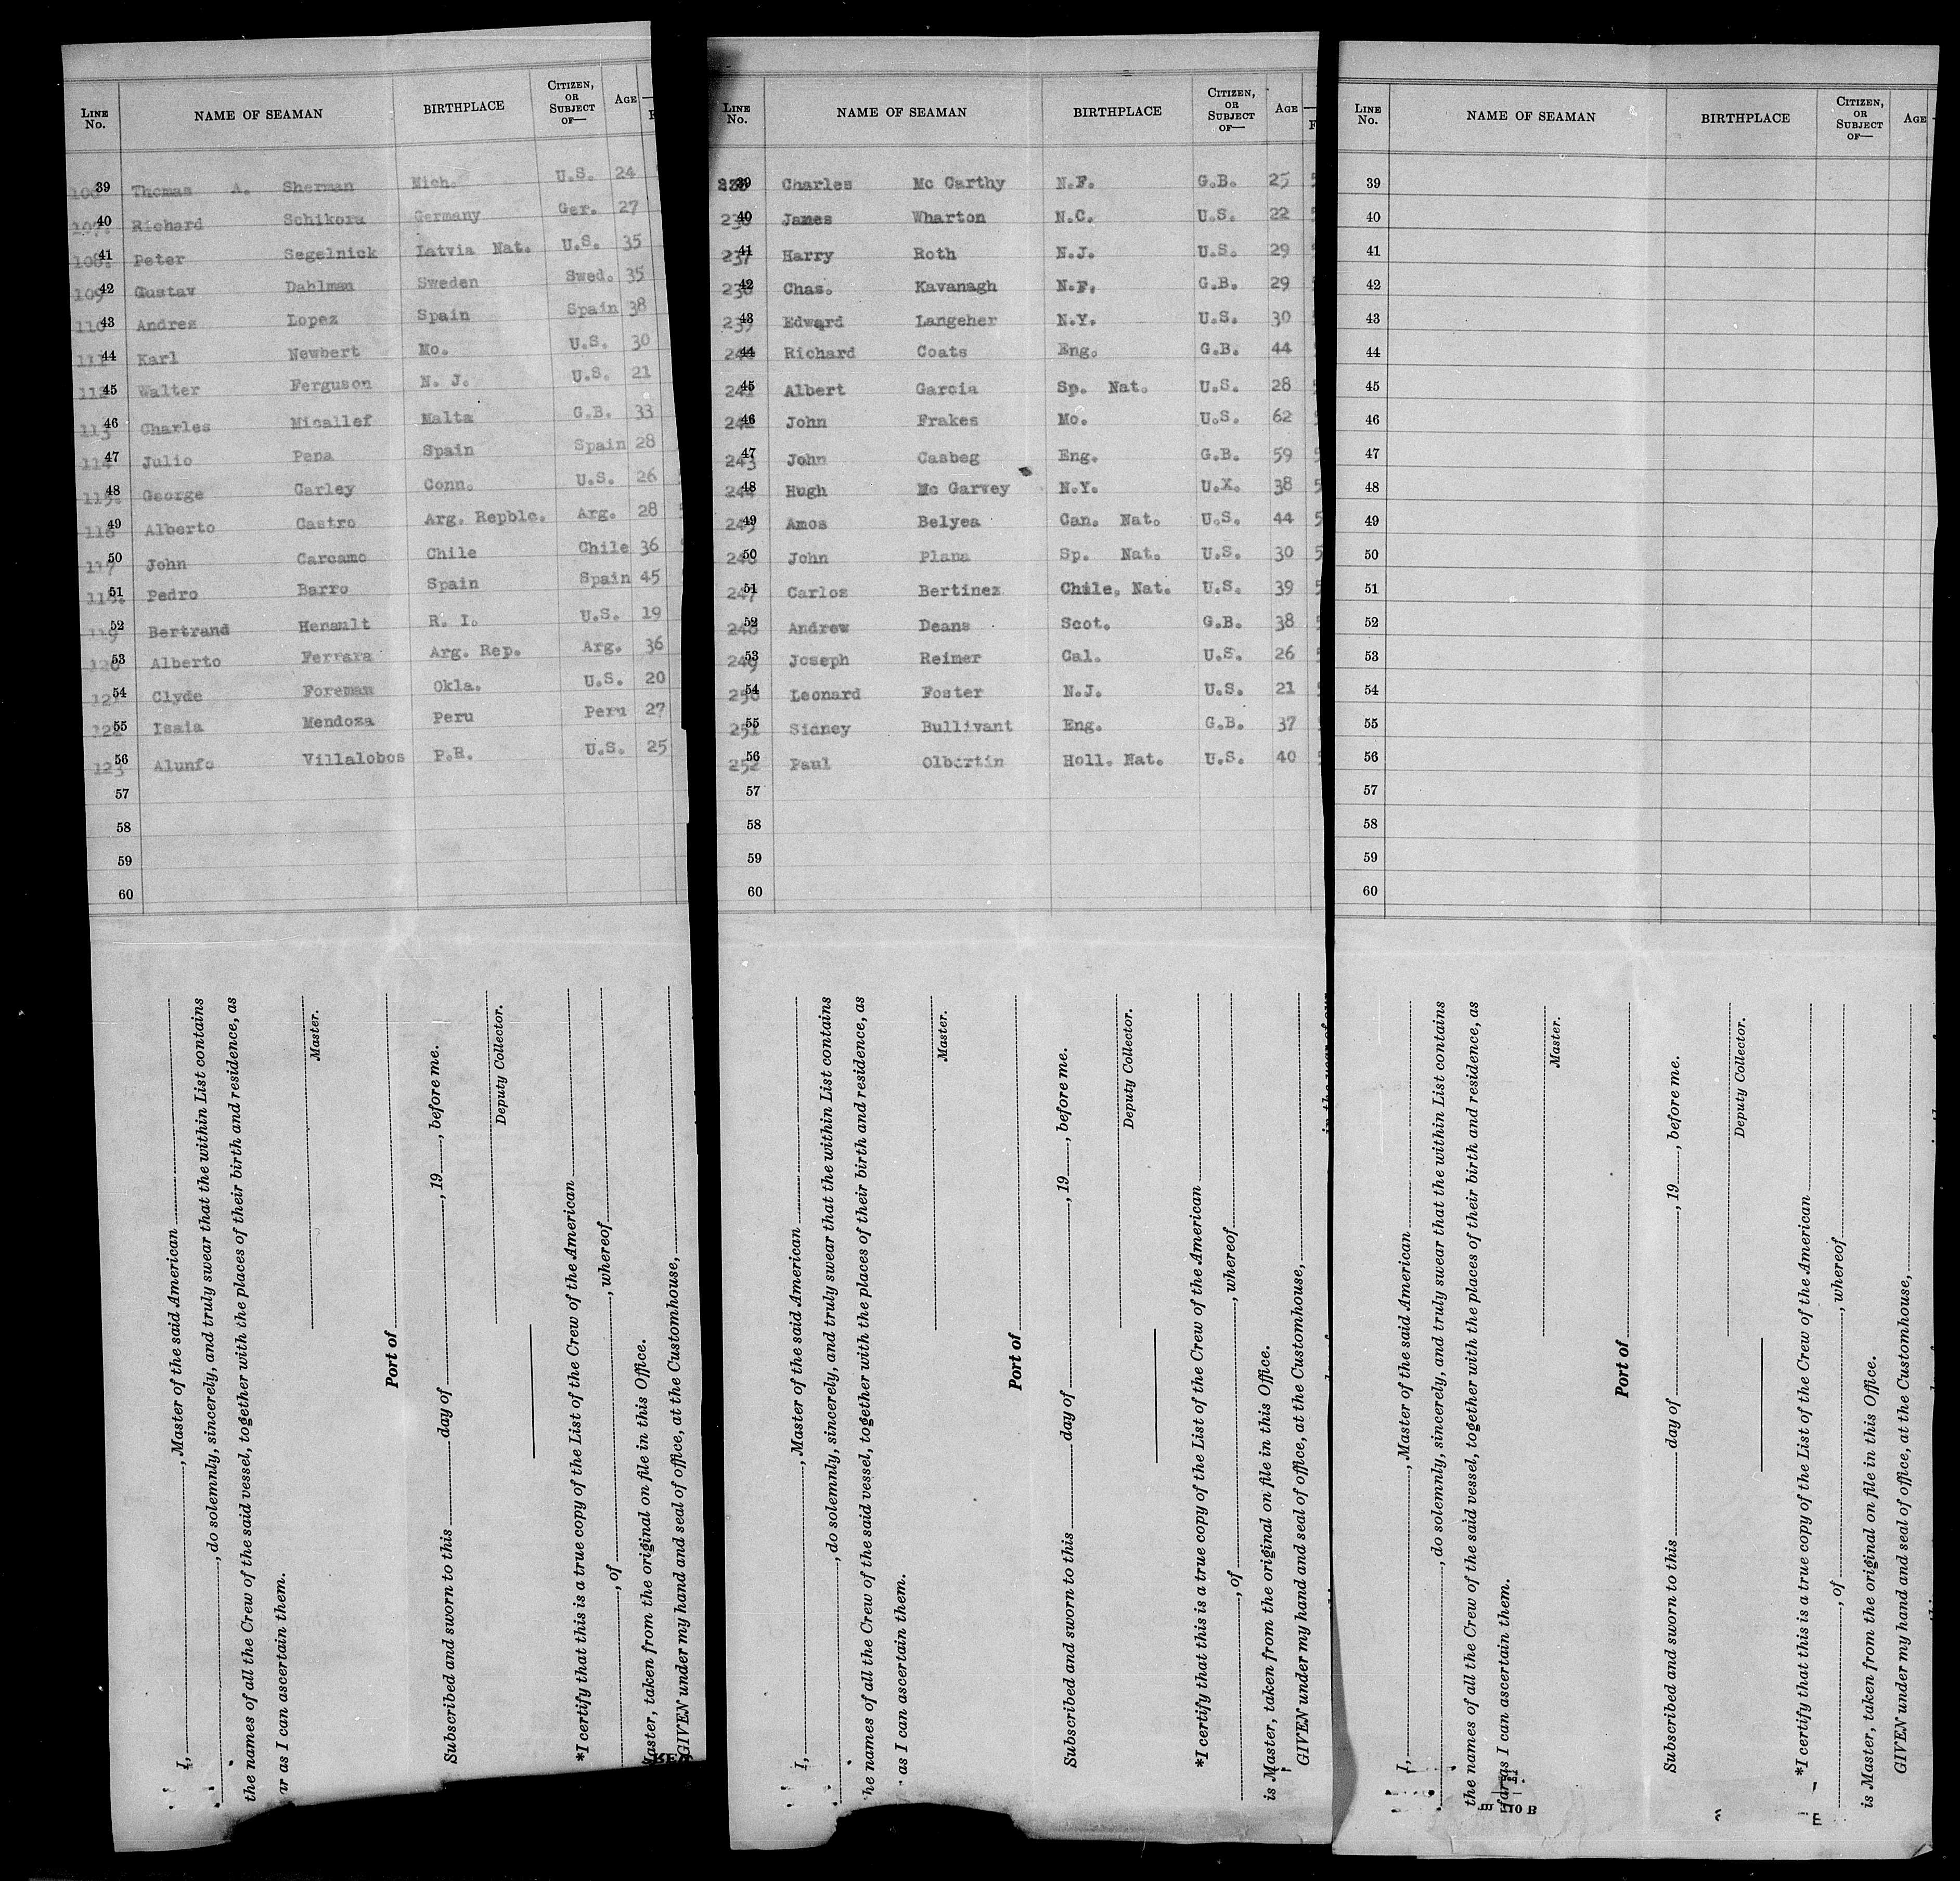 LINE No. NAME OF SEAMAN BIRTHPLACE CITIZEN, OR SUBJECT OF— AGE
39 Thomas A. Sherman Mich. U.S. 24
107. 40 Richard Schikora Germany Ger. 27
108. 41 Peter Segelnick Latvia Nat. U.S. 35
109 42 Gustav Dahlman Sweden Swed. 35
110 43 Andres Lopez Spain Spain 38
111 44 Karl Newbert Mo. U.S. 30
112 45 Walter Ferguson N. J. U.S. 21
113 46 Charles Micallef Malta G.B. 33
114 47 Julio Pena Spain Spain 28
115. 48 George Carley Conn. U.S. 26
116 49 Alberto Castro Arg. Repblc. Arg. 28
117 50 John Carcamo Chile Chile 36
118. 51 Pedro Barro Spain Spain 45
119 52 Bertrand Henault R. I. U.S. 19
120 53 Alberto Ferrara Arg. Rep. Arg. 36
121 54 Clyde Foreman Okla. U.S. 20
122 55 Isaia Mendoza Peru Peru 27
123 56 Alunfo Villalobos P.R. U.S. 25
57
58
59
60
I, , Master of the said American
, do solemnly, sincerely, and truly swear that the within List contains
the names of all the Crew of the said vessel, together with the places of their birth and residence, as
ar as I can ascertain them.
Master.
Port of
Subscribed and sworn to this day of , 19 , before me.
Deputy Collector.
*I certify that this is a true copy of the List of the Crew of the American
, of , whereof
aster, taken from the original on file in this Office.
GIVEN under my hand and seal of office, at the Customhouse,
LINE No. NAME OF SEAMAN BIRTHPLACE CITIZEN, OR SUBJECT OF— AGE F
39 Charles Mc Carthy N.F. G.B. 25 5
236 40 James Wharton N.C. U.S. 22 5
237 41 Harry Roth N.J. U.S. 29 5
238 42 Chas. Kavanagh N.F. G.B. 29
239 43 Edward Langeher N.Y. U.S. 30
240 44 Richard Coats Eng. G.B. 44
241 45 Albert Garcia Sp. Nat. U.S. 28
242 46 John Frakes Mo. U.S. 62
243 47 John Casbeg Eng. G.B. 59 5
244 48 Hugh Mc Garvey N.Y. U.X. 38 5
245 49 Amos Belyea Can. Nat. U.S. 44 5
246 50 John Plana Sp. Nat. U.S. 30 5
247 51 Carlos Bertinez Chile, Nat. U.S. 39
248 52 Andrew Deans Scot. G.B. 38
249 53 Joseph Reimer Cal. U.S. 26
250 54 Leonard Foster N.J. U.S. 21
251 55 Sidney Bullivant Eng. G.B. 37
252 56 Paul Olbertin Holl. Nat. U.S. 40
57
58
59
60
I, , Master of the said American
, do solemnly, sincerely, and truly swear that the within List contains
he names of all the Crew of the said vessel, together with the places of their birth and residence, as
as I can ascertain them.
Master.
Port of
Subscribed and sworn to this day of , 19 , before me.
Deputy Collector.
*I certify that this is a true copy of the List of the Crew of the American
, of , whereof
is Master, taken from the original on file in this Office.
GIVEN under my hand and seal of office, at the Customhouse,
LINE No. NAME OF SEAMAN BIRTHPLACE CITIZEN, OR SUBJECT OF— AGE
39
40
41
42
43
44
45
46
47
48
49
50
51
52
53
54
55
56
57
58
59
60
I, , Master of the said American
, do solemnly, sincerely, and truly swear that the within List contains
the names of all the Crew of the said vessel, together with the places of their birth and residence, as
far as I can ascertain them.
Master.
Port of
Subscribed and sworn to this day of , 19 , before me.
Deputy Collector.
*I certify that this is a true copy of the List of the Crew of the American
, of , whereof
is Master, taken from the original on file in this Office.
GIVEN under my hand and seal of office, at the Customhouse,